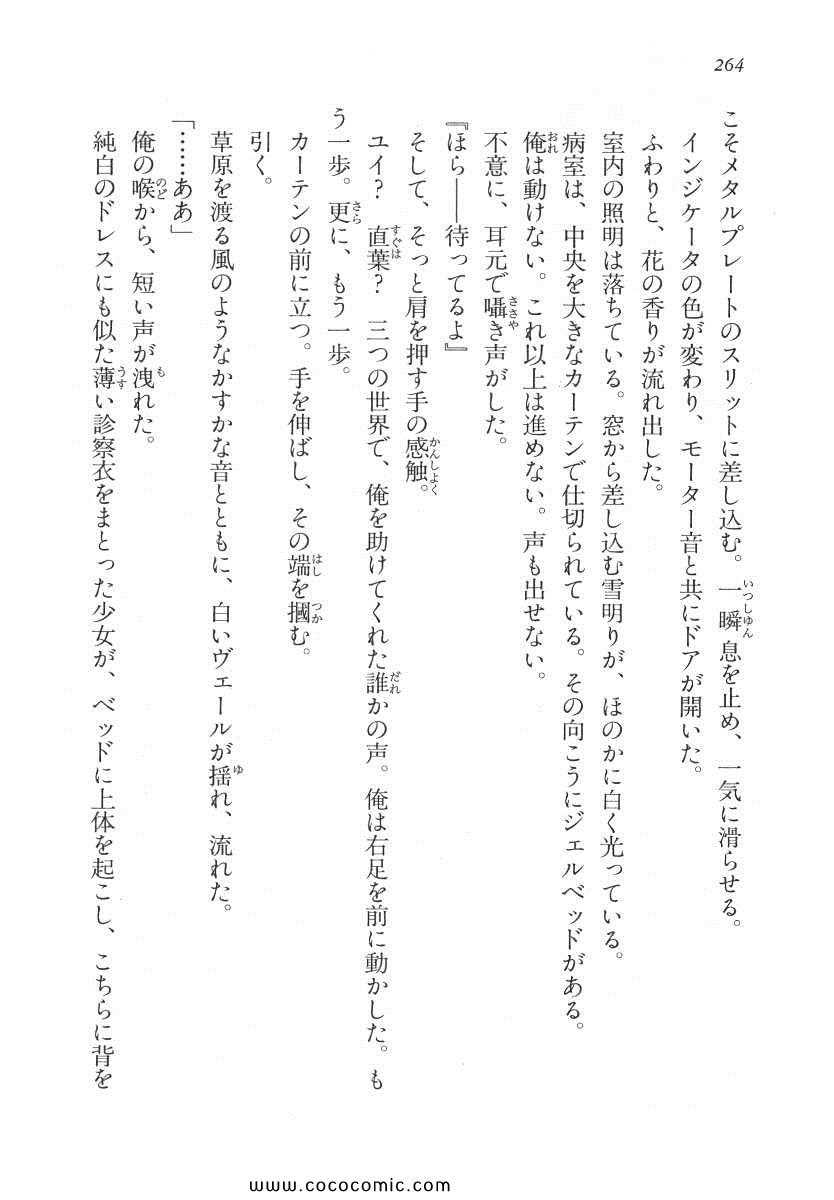 264
こそメタルプレートのスリットに差し込む。一瞬息を止め、一気に滑らせる。
インジケータの色が変わり、モーター音と共にドアが開いた。
ふわりと、花の香りが流れ出した。
室内の照明は落ちている。窓から差し込む雪明りが、ほのかに白く光っている。
病室は、中央を大きなカーテンで仕切られている。その向こうにジェルベッドがある。
俺は動けない。これ以上は進めない。声も出せない。
不意に、耳元で囁き声がした。
『ほら――待ってるよ』
そして、そっと肩を押す手の感触。
ユイ？　直葉？　三つの世界で、俺を助けてくれた誰かの声。俺は右足を前に動かした。も
う一歩。更に、もう一歩。
カーテンの前に立つ。手を伸ばし、その端を摑む。
引く。
草原を渡る風のようなかすかな音とともに、白いヴェールが揺れ、流れた。
「……ああ」
俺の喉から、短い声が洩れた。
純白のドレスにも似た薄い診察衣をまとった少女が、ベッドに上体を起こし、こちらに背を
www.cococomic.com